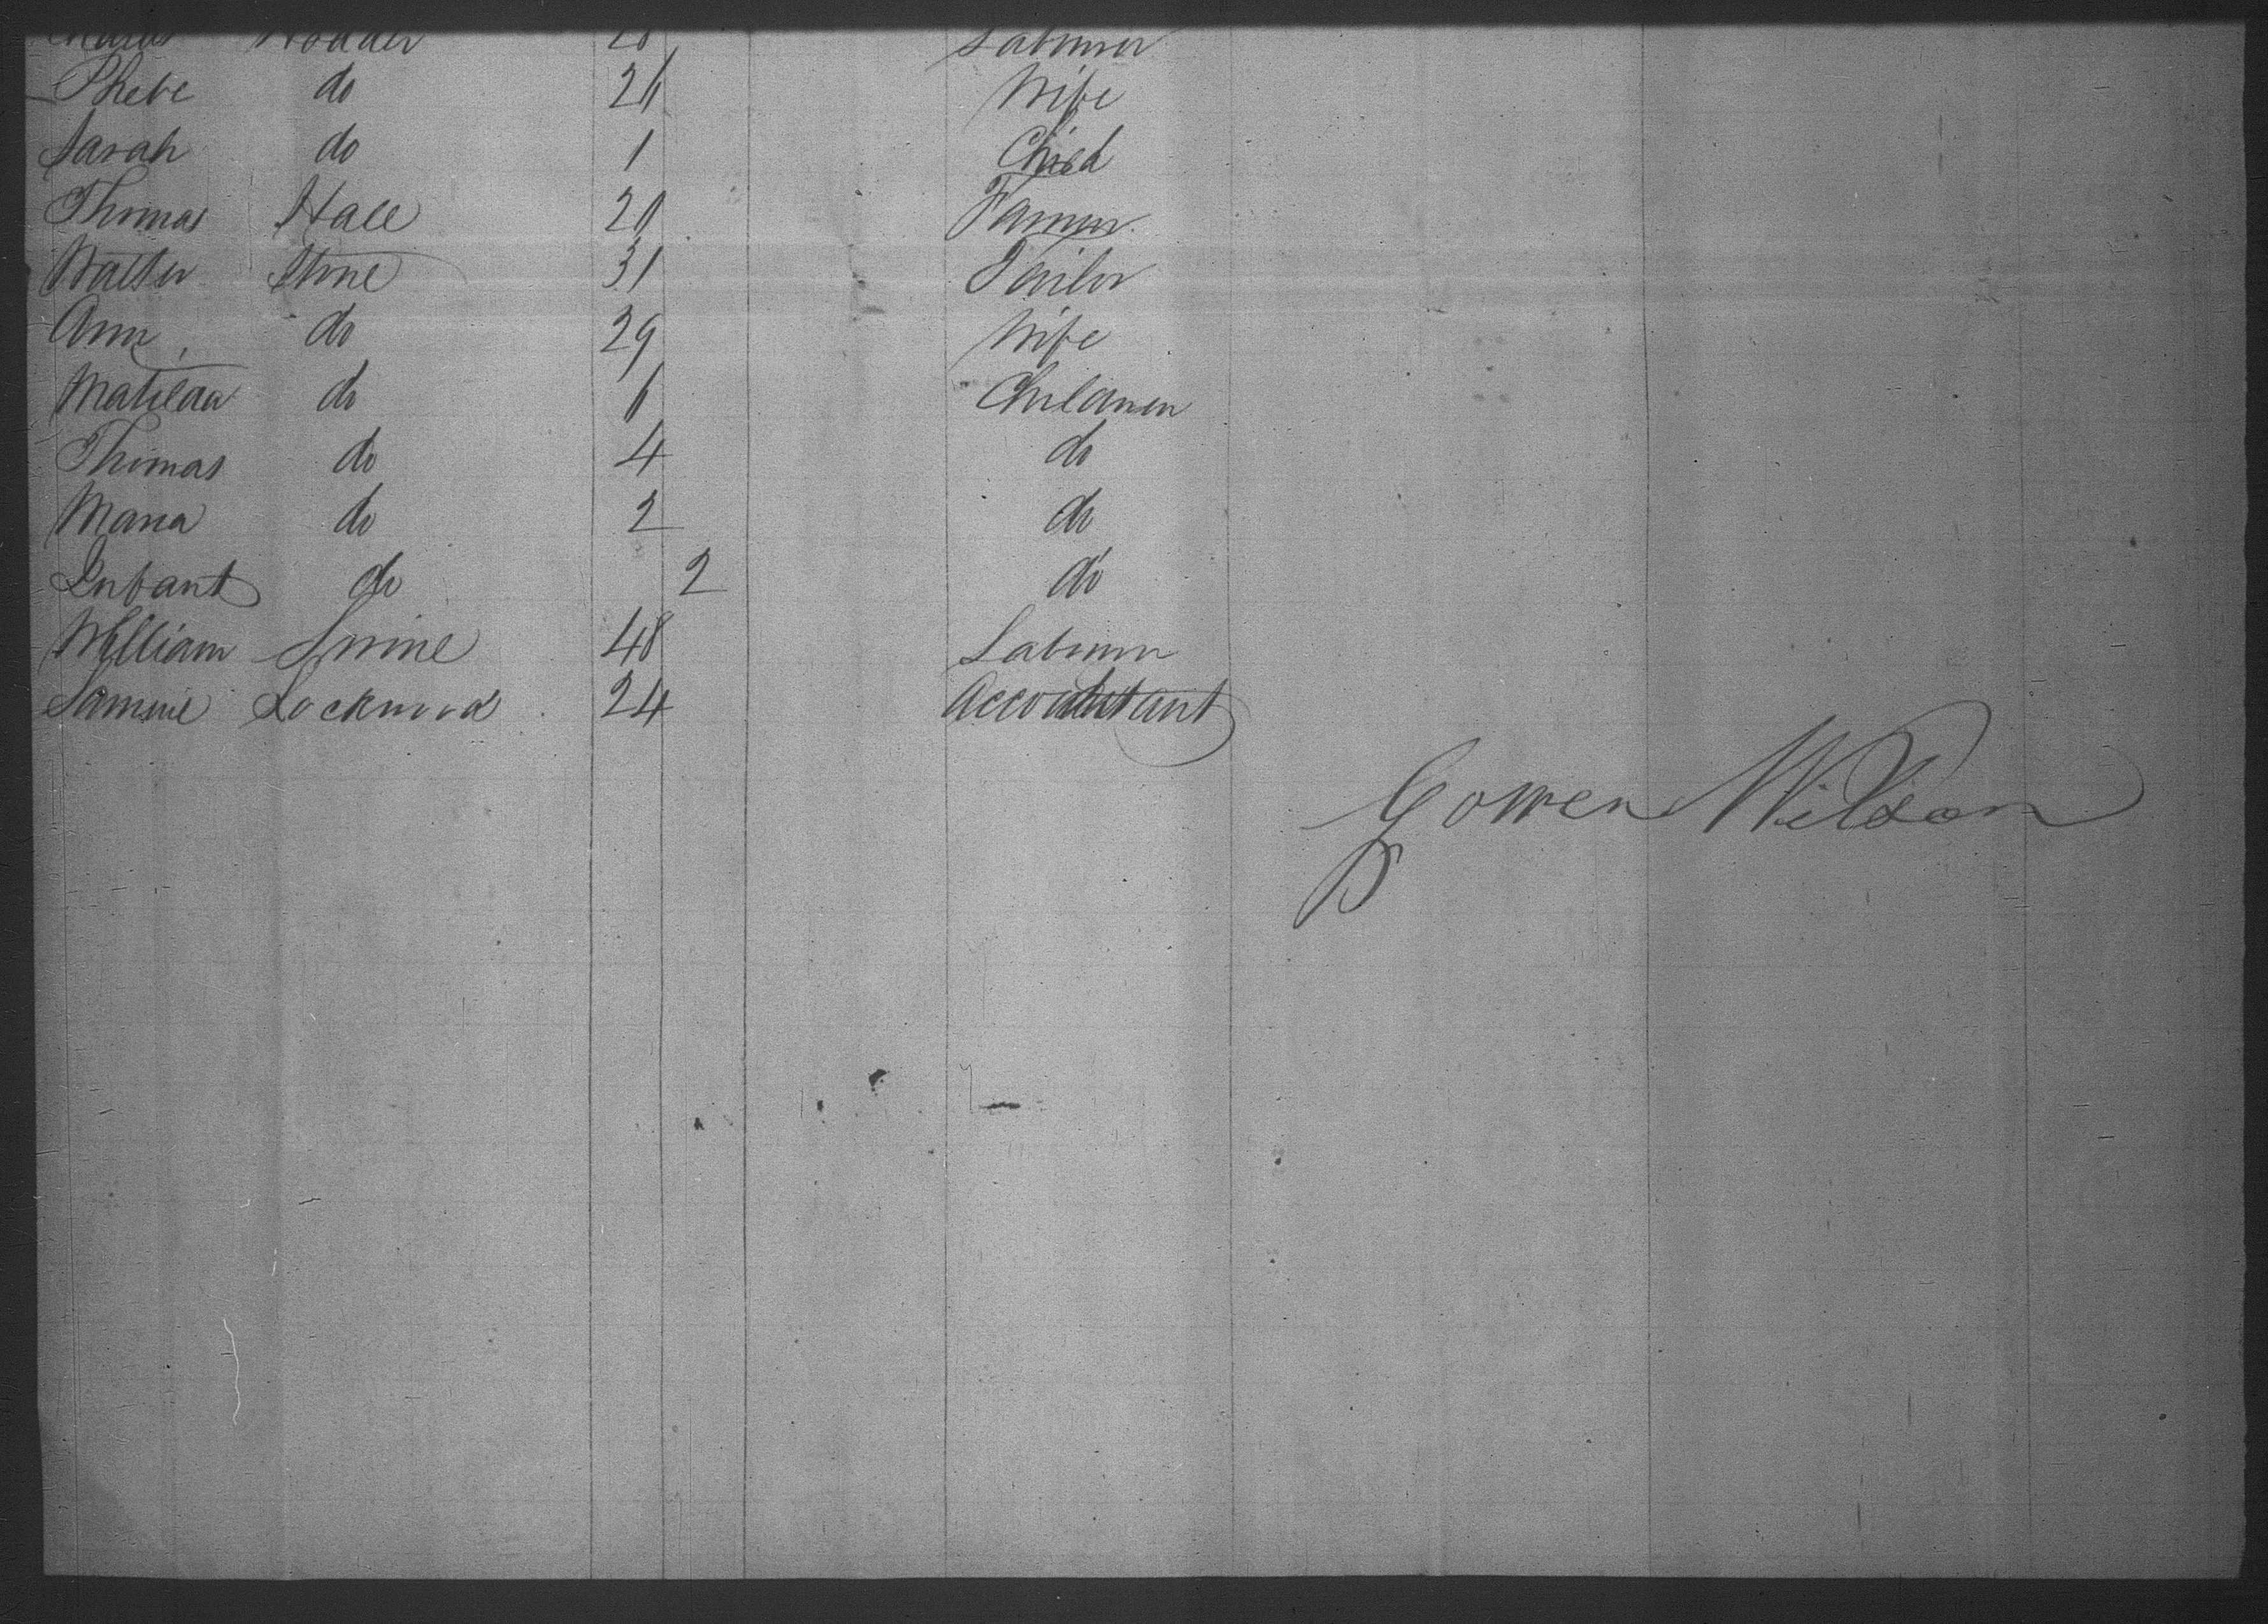 Hodder 28 Labourer
Phebe do 26 Wife
Sarah do 1 Child
Thomas Hall 20 Farmer
Walter Stone 31 Tailor
Ann do 29 Wife
Matilda do 6 Children
Thomas do 4 do
Maria do 2 do
Infant do 2 do
William 48 Labourer
Samuel Lockwood 24 Accountant
Gowen Wilson